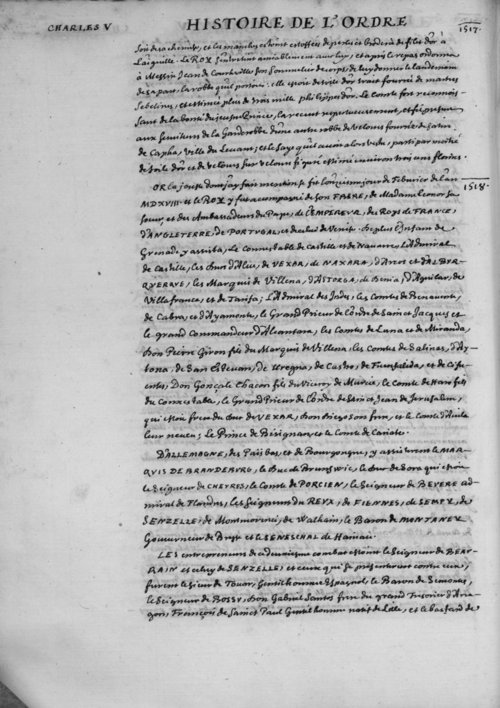 CHARLES V HISTOIRE DE L'ORDRE
1517.
soir de sa chemise, et les manches estoient estoffées de perles et brodées de filet d'or à
l'aiguille. Le ROY se devestant amiablement avec luy, et aprés le repas ordonna
à Messire Jean de Courteville son Sommelier de corps, de luy donner le lendemain
de sa part la robbe qu'il portoit: elle estoit de toile d'or traict fourrée de martres
Sebelines, et estimée plus de trois mille philippes d'or. Le Comte fort recognois-
sant de la bonté du jeune Prince, la receut reverentieusement, et fit présent
aux serviteurs de la Garderobbe d'une autre robbe de velours fourrée de satin
de Capha, ville du Levant; et le saye qu'il avoit alors vestu, party par moitié
de toile d'or et de velours sur velours qui estoit estimé environ trois cens florins.
1518.
OR la jouste dont j'ay fait mention se fit l'onziesme jour de Febvrier de l'an
MDXVIII. et le ROY y fut accompagné de son FRERE, de Madame Leonor sa
soeur, et des Ambassadeurs du Pape, de l'EMPEREVR, des Roys de FRANCE,
d'ANGLETERRE, de PORTVGAL, et de celuy de Venise. De plus l'Infant de
Grenade y assista, le Connestable de Castille et de Navarre, l'Admiral
de Castille, les Ducs d'Alve, de VEXAR, de NAXARA, d'Arcos et d'ALBVR-
QVERQVE, les Marquis de Villena, d'ASTORGA, de Denia, d'Aguilar, de
Villafranca, et de Tarifa; l'Admiral des Indes, les Comtes de Benavente,
de Cabra, et d'Ayamonte, le Grand Prieur de l'Ordre de Sainct Jacques et
le grand Commandeur d'Alcantara, les Comtes de Luna et de Miranda,
Don Pierre Giron fils du Marquis de Villena, les Comtes de Salinas, d'Ay-
tona, de San Estevan, de Uregna, de Castro, de Fuensalida, et de Cifu-
entes, Don Gonçale Chacon fils du Viceroy de Murcie, le Comte de Haro fils
du Connestable, le Grand Prieur de l'Ordre de Sainct Jean de Jerusalem,
qui estoit frere du Duc de VEXAR, Don Diego son frere, et le Comte d'Avila
leur neveu; Le Prince de Bisignan, et le Comte de Cariate.
D'ALLEMAGNE, des Pais bas, et de Bourgongne, y assisterent le MAR-
QVIS DE BRANDEBVRG, le Duc de Brunswic, le Duc de Sora qui estoit
le Seigneur de CHEVRES, le Comte de PORCIEN, le Seigneur de BEVERE ad-
miral de Flandres, les Seigneurs du REVX, de FIENNES, de SEMPY, de
SENZELLE, de Montmorenci, de Walhain, le Baron de MONTANEY
Gouverneur de Bresse et le SENESCHAL de Hainau.
LES entrepreneurs de ce deuxiesme combat estoient le Seigneur de BEAV-
RAIN et celuy de SENZELLE; et ceux qui se presenterent contre eux,
furent le Sieur de Touar, Gentilhomme Espagnol, le Baron de Semonay,
le Seigneur de BOSSV, Don Gabriel Santos frere du grand Tresorier d'Ara-
gon; François de Sainct Paul Gentilhomme natif de Lille, et le bastard de